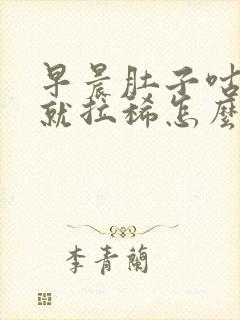 早晨肚子咕
就拉稀怎麽
李青蘭